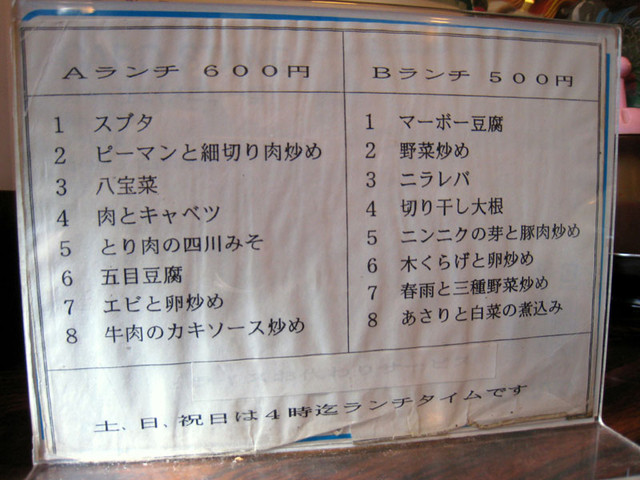 Aランチ 600円
1 スブタ
2 ピーマンと細切り肉炒め
3 八宝菜
4 肉とキャベツ
5 とり肉の四川みそ
6 五目豆腐
7 エビと卵炒め
8 牛肉のカキソース炒め
Bランチ 500円
1 マーボー豆腐
2 野菜炒め
3 ニラレパ
4 切り干し大根
5 ニンニクの芽と豚肉炒め
6 木くらげと卵炒め
7 春雨と三種野菜炒め
8 あさりと白菜の煮込み
土、日、祝日は4時迄ランチタイムです